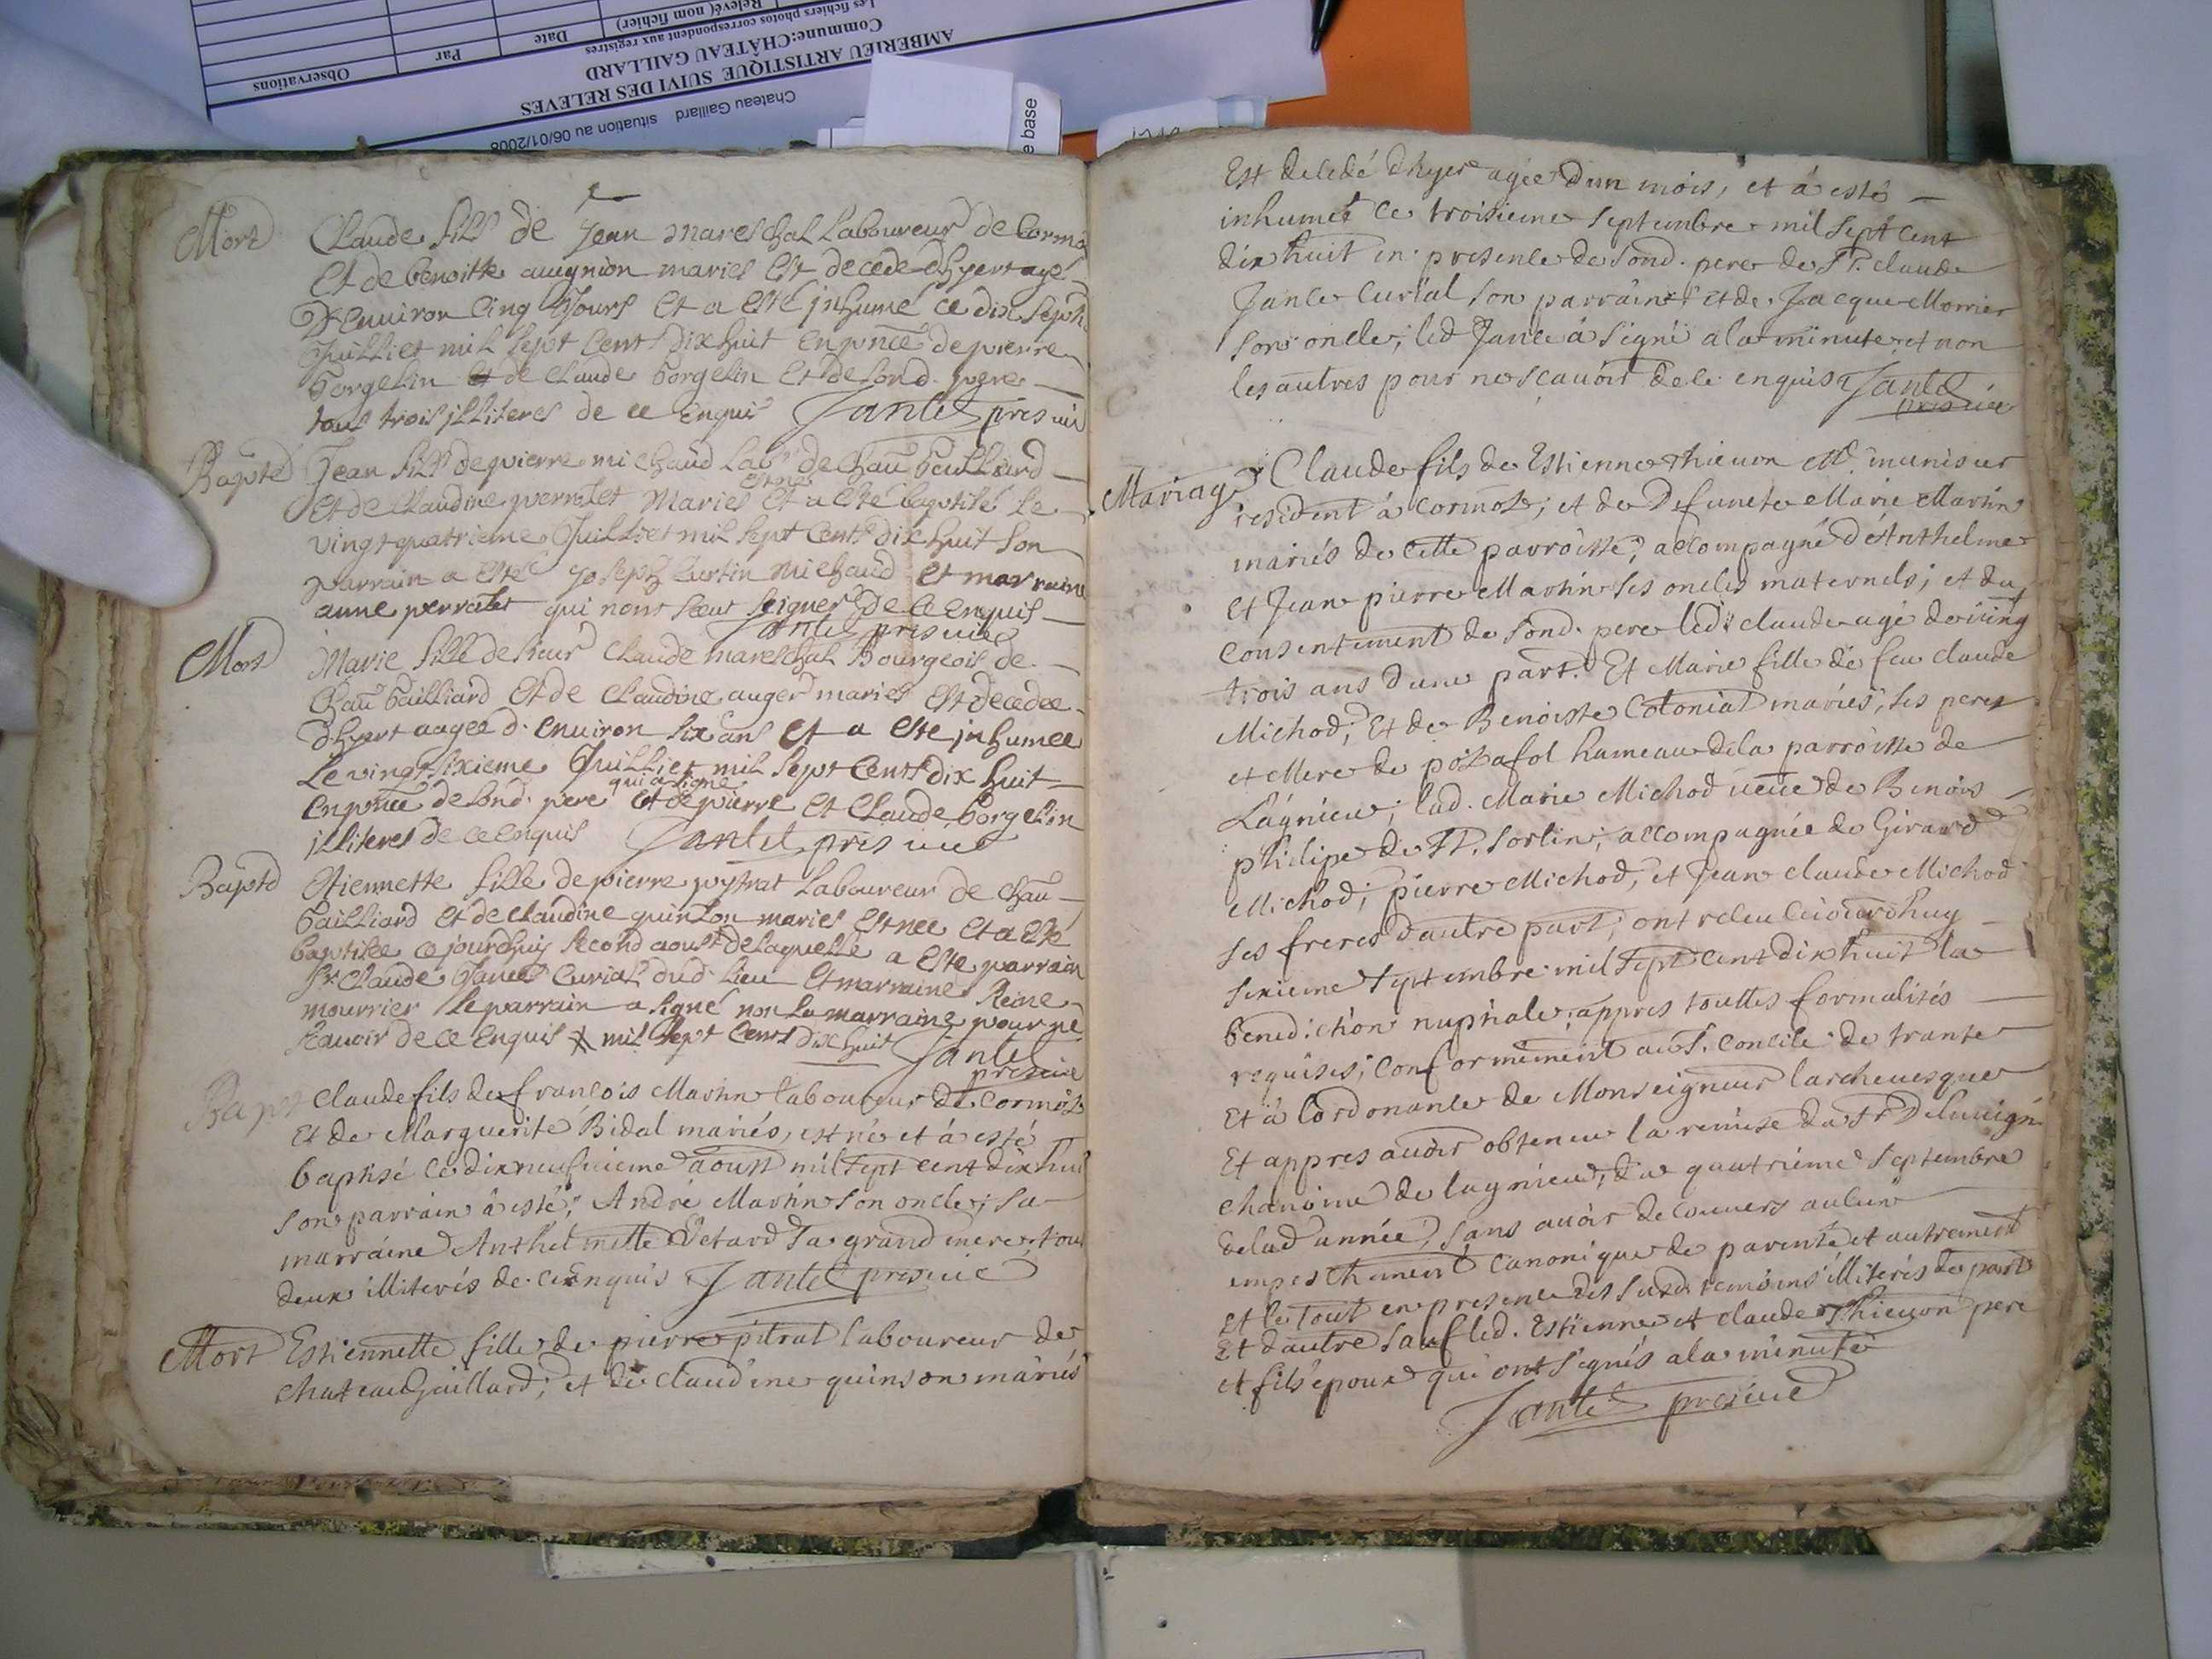 Observations
Par
Date
Relevé( nom fichier)
Les fichiers photos correspondent aux registres
Commune:CHÂTEAU GAILLARD
AMBERIEU ARTISTIQUE SUIVI DES RELEVES
Chateau Gaillard situation au 06/01/2008
e base
Mort
Claude fils de Jean mareschal Laboureur de Cormo
Et de benoitte auugnion mariés Est decedé dhyert agé
D'Enuiron Cinq Jours Et a Esté jnhumé ce dix sept
Juilliet mil sept Cent dix huit En pnce de pierre
borgelin de Claude borgelin Et de sond. pere
tous trois jlliteres de ce Enquis Jantet pres vic
Baptē
Jean fils de pierre michaud Labr de Chau Gailliard
Et de Claudine perratet Mariés Est né Et a Esté baptisé Le
vingt quatrieme Juilliet mil sept Cent dix huit son
parrain a Esté Joseph Curtin michaud Et marraine
anne perratet qui nont sceut signer de ce Enquis
Jantet pres vic
Mort
Marie fille de sieur Claude mareschal Bourgeois de
Chau Gailliard Et de Claudine auger mariés Est decedee
dhyert aagee d. Enuiron six ans Et a Esté jnhumee
Le vingt sixieme Juilliet mil sept Cent dix huit
En pnce de sond. pere qui a signé Et de pierre Et Claude borgelin
jlliteres de ce Enquis Jantet pres vic
Baptē
Etiennette fille de pierre pytrat Laboureur de Chau
Gailliard Et de Claudine quinson mariés Est nee Et a Esté
baptisee ce jourdhuy second aoust de Laquelle a Esté parrain
Sr. Claude Janet Curial dud. Lieu Et marraine Reine
mourrier Le parrain a signé non La marraine pour ne
scauoir de ce Enquis mil sept Cent dix huit Jantet
pres vic
Bapt
Claude fils de françois Martin laboureur de Cormoz
Et de Marguerite Bidal mariés, est né et à esté
baptisé le dix neufuieme aoust mil sept cent dix huit
son parrain à esté, André Martin son oncle; sa
marraine Anthelmette Betard sa grand mere, tous
deux illiterés de ce enquis Jantet pres vic
Mort
Estiennette fille de pierre pitrat laboureur de
Chateau Gaillard; et de claudine quinson mariés
Est decedé dhyer agée d'un mois, et à esté
inhumée ce troisieme septembre mil sept cent
dix huit in presence de sond. pere de Sr. claude
Jance curial son parrain et de Jacque Morrier
son oncle; led Jance à signé a la minute et non
les autres pour ne sçauoir de ce enquis Jantet
pres vic
Mariage
Claude fils de Estienne Thieuon Md. munisier
resident à Cormoz; et de Defuncte Marie Martin
mariés de cette parroisse, accompagné d'Anthelme
et Jean pierre Martin ses oncles maternels; et du
consentement de sond. pere led. claude agé de vingt
trois ans d'une part. Et Marie fille de feu claude
Michod; Et de Benoiste Coloniat mariés, ses peres
et Mere de pozafol hameau de la parroisse de
Lagnieu; lad. Marie Michod veuue de Benois
philipe de St. Sorlin; accompagnée de Girard
Michod; pierre Michod, et Jean claude Michod
ses freres d'autre part; ont receu ceiourdhuy
sixieme septembre mil sept cent dix huit la
benediction nuptiale, appres touttes formalités
requises; conformement au S. Concile de trante
Et à l'ordonance de Monseigneur l'archeuesque
Et appres auoir obtenu la remise du Sr
chanoine de lagnieu; du quatrieme septembre
de lad. année, sans auoir decouuers aulcun
empeschement canonique de parenté et autrement
et le tout en presence des susd. temoins illiterés de part
et d'autre sauf led. Estienne et claude Thieuon pere
et fils époux qui ont signés a la minute
Jantet pres vic